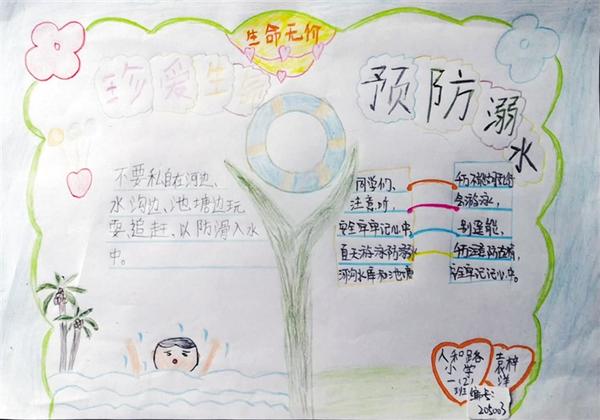 生命无价
珍爱生命
预防溺水
不要私自在河边、
水沟边、池塘边玩
耍追赶、以防滑入水
中。
同学们、
注意听，
安全牢牢记心中。
夏天游泳防溺水
河沟水库和池塘
会游泳，
别逞能，
安全牢记心中。
人和路
小学
一(2)
班
袁梓
洋
编号：
205003